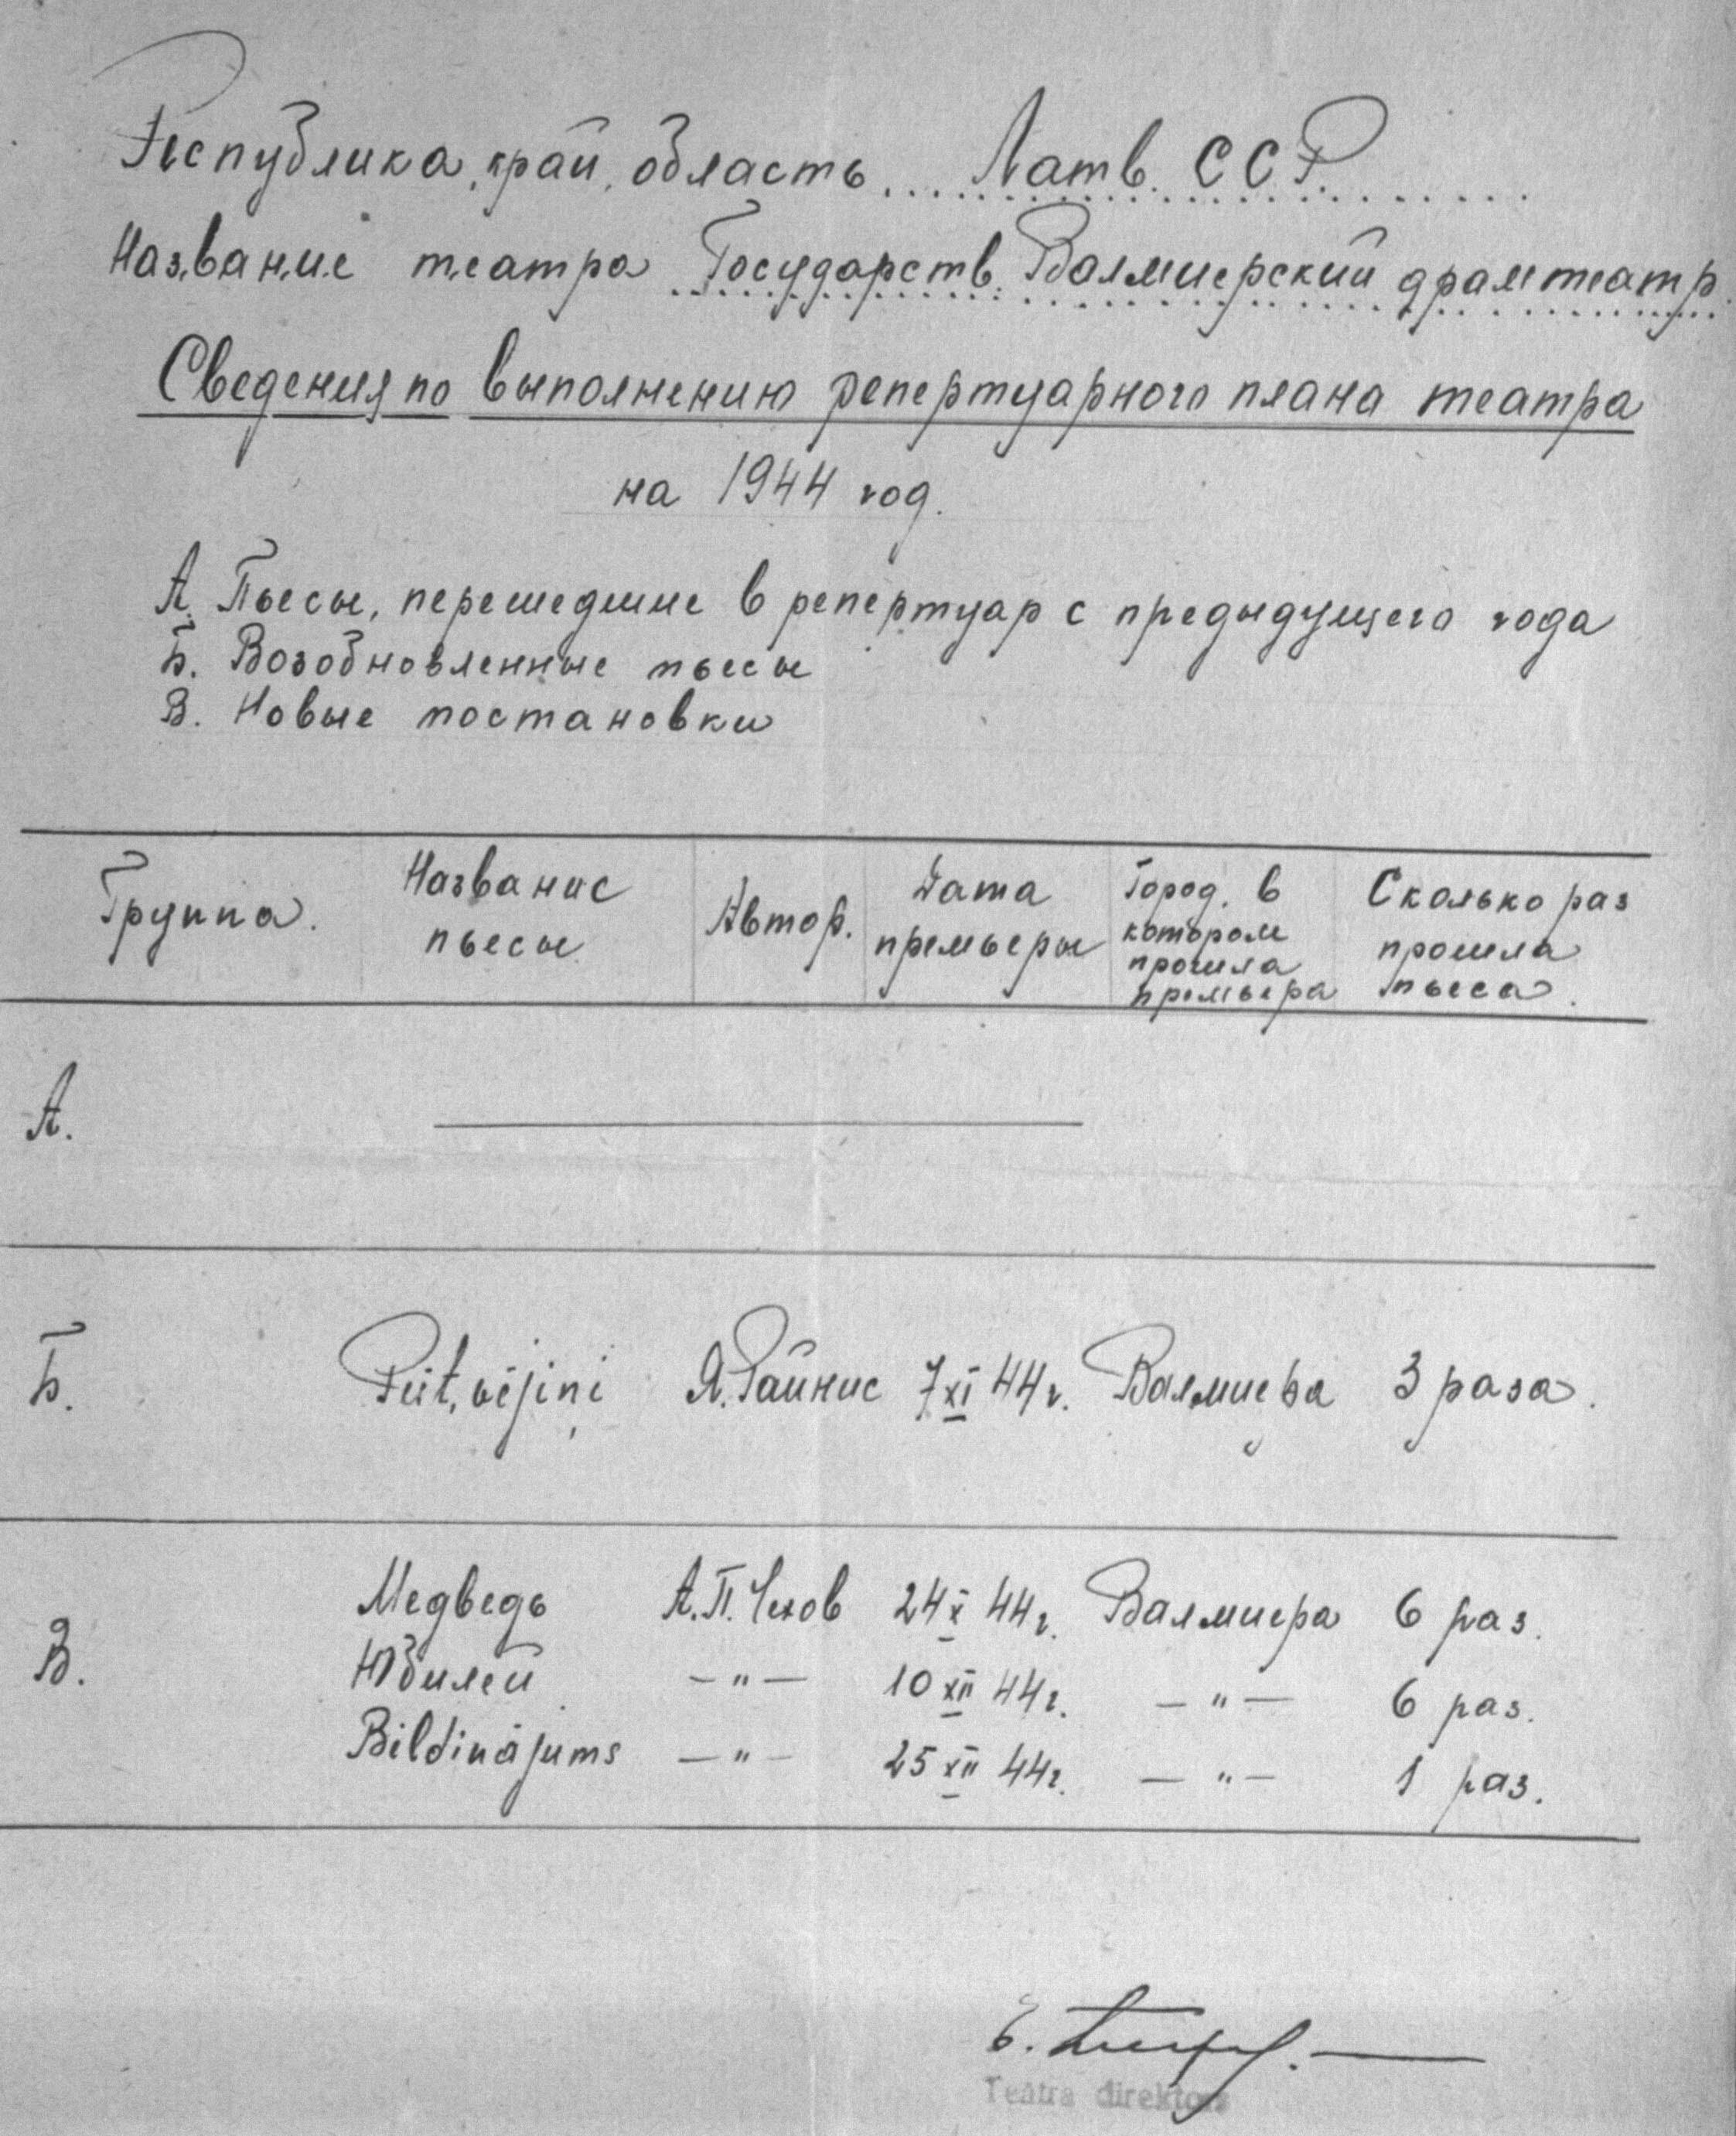 Республика, край, область.... Латв. ССР.
Название театра Государств. Валмиерский драмтеатр.
Сведения по выполнению репертуарного плана театра
на 1944 год.
А. Пьесы, перешедшие в репертуар с предыдущего года
Б. Возобновленные пьесы
В. Новые постановки
Группа. Название пьесы Автор. Дата премьеры Город, в котором прошла премьера Сколько раз прошла пьеса.
А.
Б. Pūt, vējiņi Я. Райнис 7 XI 44 г. Валмиера 3 раза.
В.
Медведь А. П. Чехов 24 X 44 г. Валмиера 6 раз.
Юбилей — " — 10 XII 44 г. — " — 6 раз.
Bildinājums — " — 25 XII 44 г. — " — 1 раз.
Teātra direktors